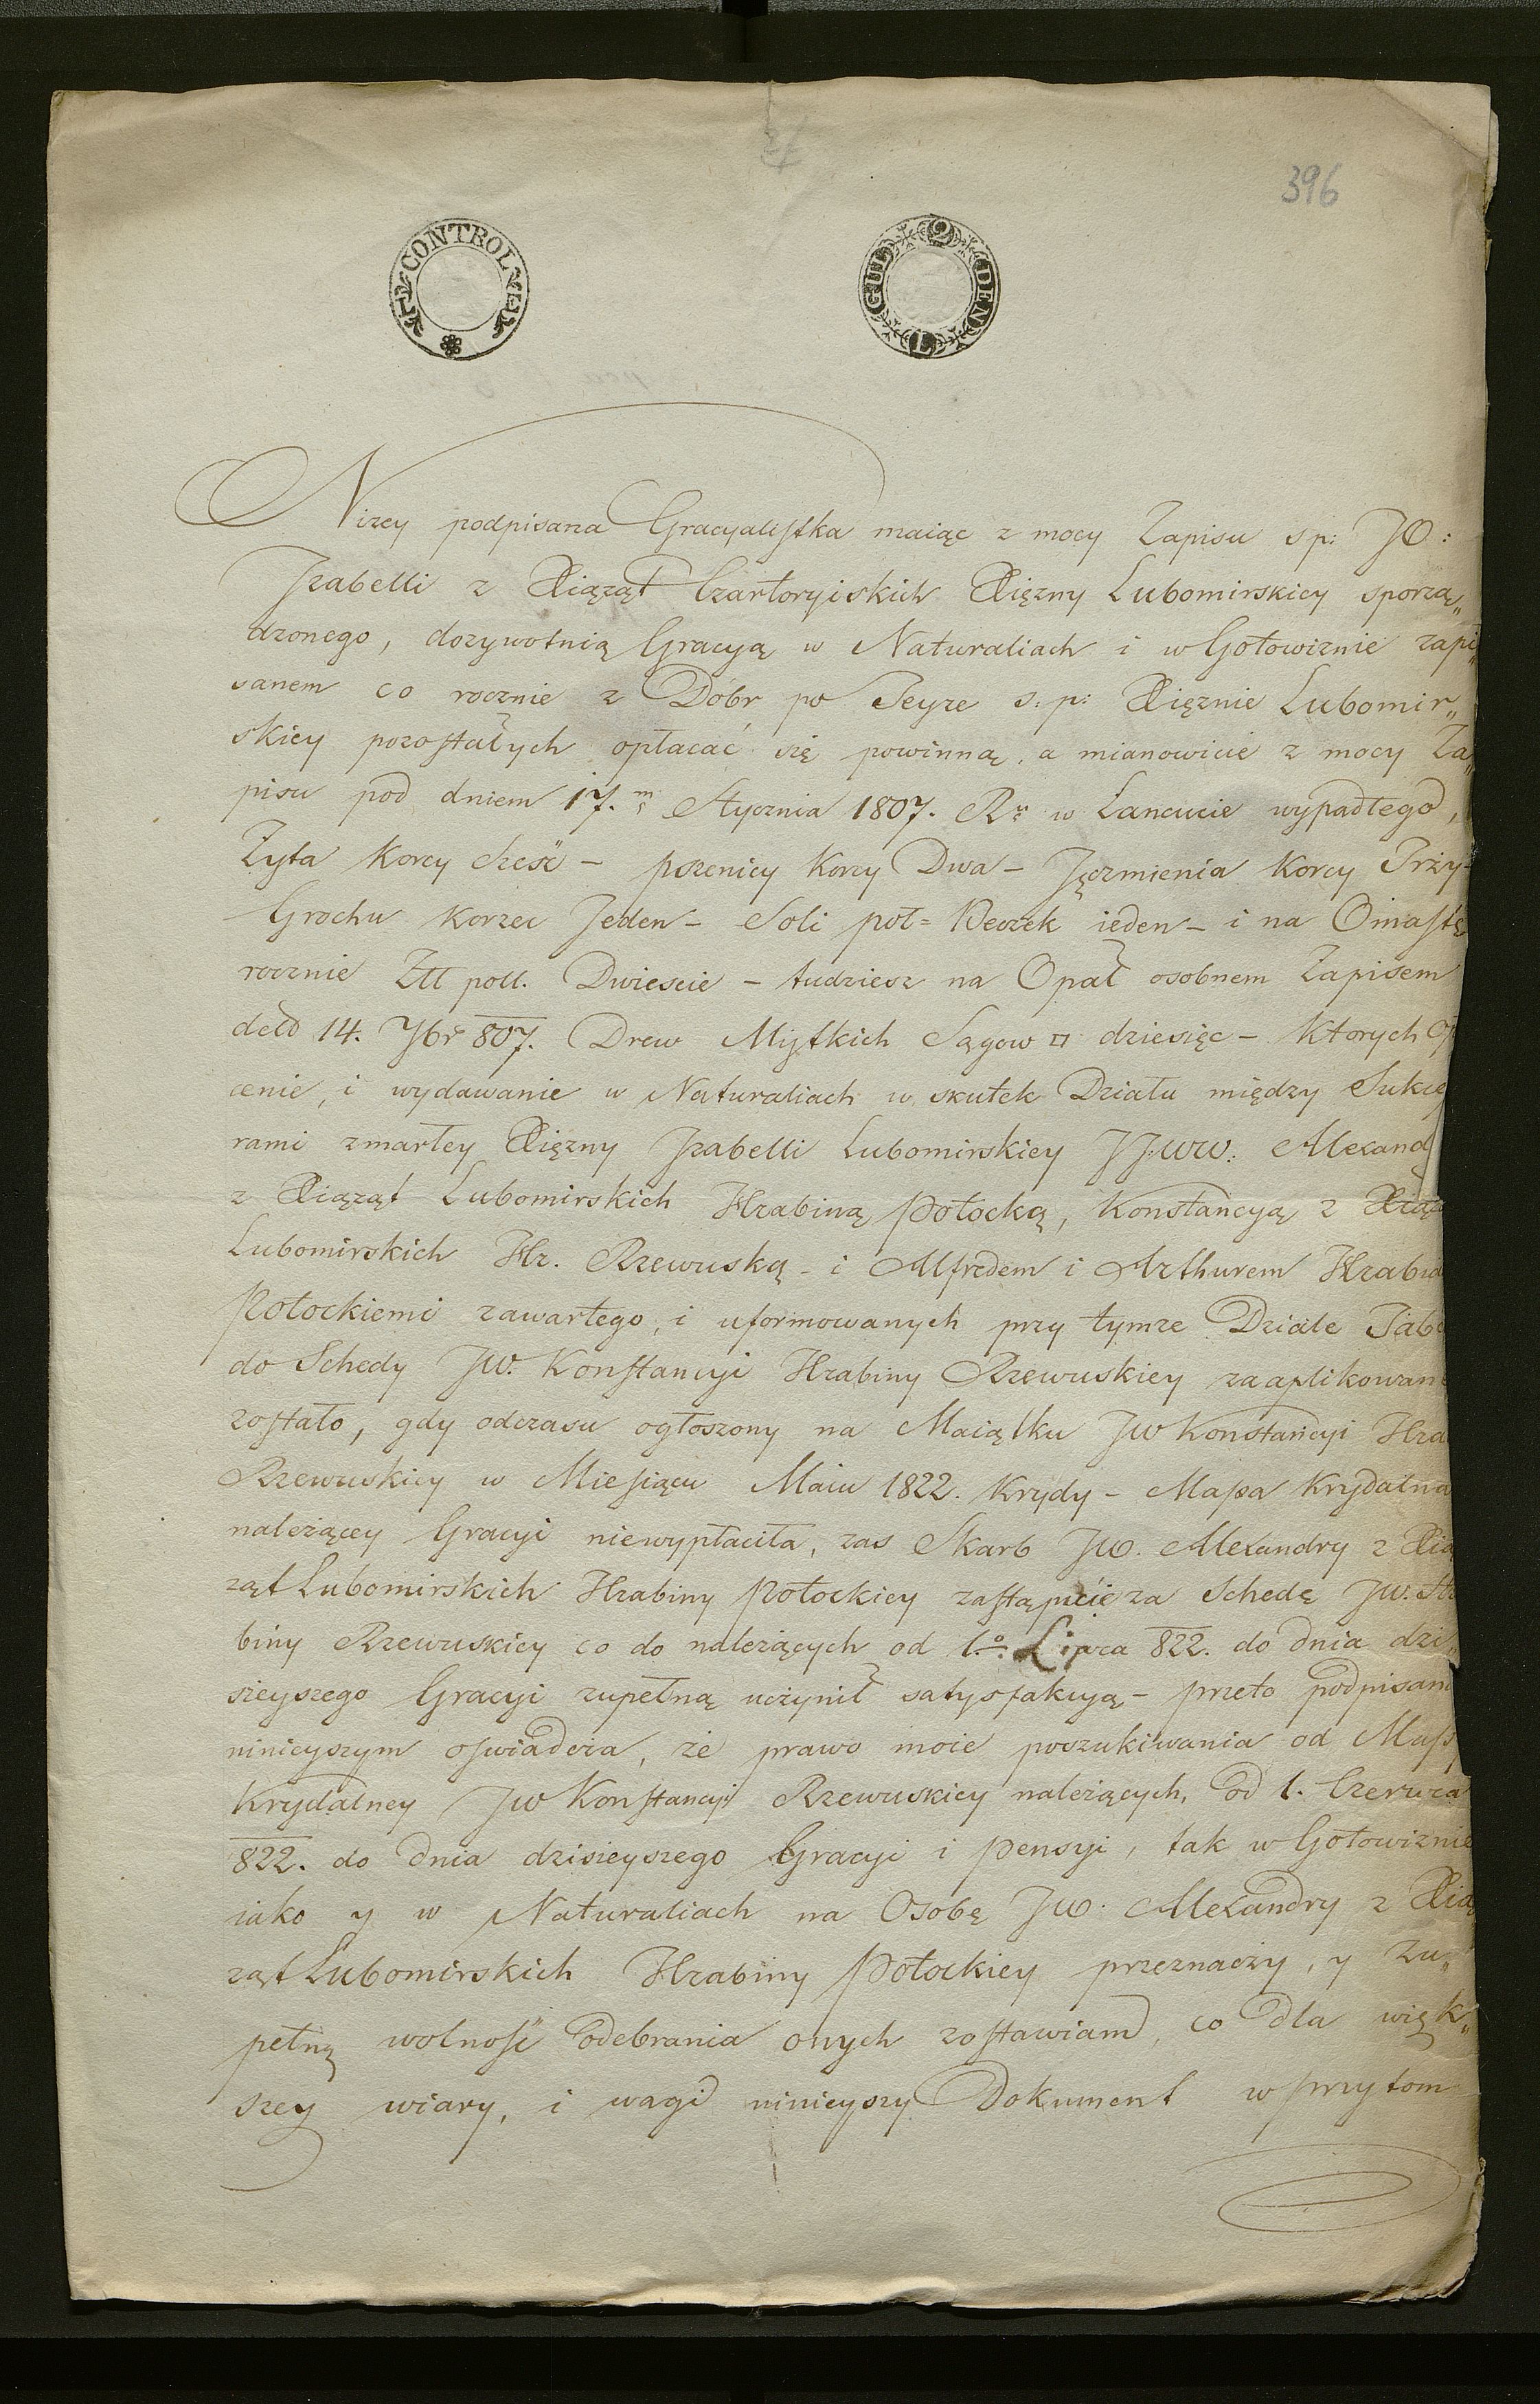 396
CONTROL
2 GULDEN L
Nizey podpisana Gracyalistka maiąc z mocy Zapisu sp: JO:
Jzabelli z Xiąząt Czartoryiskich Xięzny Lubomirskiey sporzą„
dzonego, dozywotnią Gracyą w Naturaliach i w Gotowiznie zapi„
sanem co rocznie z Dóbr po Teyze s: p: Xięznie Lubomir„
skiey pozostałych opłacać się powinną, a mianowicie z mocy Za„
pisu pod dniem 17. Stycznia 1807. Rr w Lancucie wypadłego,
Zyta Korcy Szesc – pszenicy Korcy Dwa – Jęczmienia Korcy Trzy –
Grochu Korzec Jeden – Soli poł = Beczek ieden – i na Omastę
rocznie Złł poll. Dwiescie – tudziesz na Opał osobnem Zapisem
detd 14. 7br 807. Drew Miętkich Sągow □ dziesięc – Ktorych
cenie, i wydawanie w Naturaliach w skutek Działu między Sukce
rami zmarłey Xięzny Jzabelli Lubomirskiey JJ:WW: Alexand
z Xiąząt Lubomirskich Hrabiną Potocką, Konstancyą z Xiąz
Lubomirskich Hr. Rzewuską – i Alfredem i Arthurem Hrabia
Potockiemi zawartego, i uformowanych przy tymze Dziale Tabe
do Schedy JW. Konstancyi Hrabiny Rzewuskiey zaaplikowane
zostało, gdy odczasu ogłoszony na Maiątku JW Konstancyi Hra
Rzewuskiey w Miesiącu Maiu 1822. Krydy – Massa Krydalna
należącey Gracyi niewypłaciła, zas Skarb JW. Alexandry z Xią
ząt Lubomirskich Hrabiny Potockiey zastąpicie za Schedę JW. Hr
biny Rzewuskiey co do należących od 1.o Lipca 822. do dnia dzi„
sieyszego Gracyi zupełną uczynił satysfakcyą – przeto podpisana
ninieyszym oswiadcza, że prawo moie poszukiwania od Massy
Krydalney JW Konstancyi Rzewuskiey należących, od 1. Czerwca
822. do dnia dzisieyszego Gracyi i pensyi, tak w Gotowiznie
iako y w Naturaliach na Osobę JW. Alexandry z Xią
ząt Lubomirskich Hrabiny Potockiey przeznaczy, y zu„
pełną wolność odebrania onych zostawiam, co dla więk„
szey wiary, i wagi ninieyszy Dokument w przytom